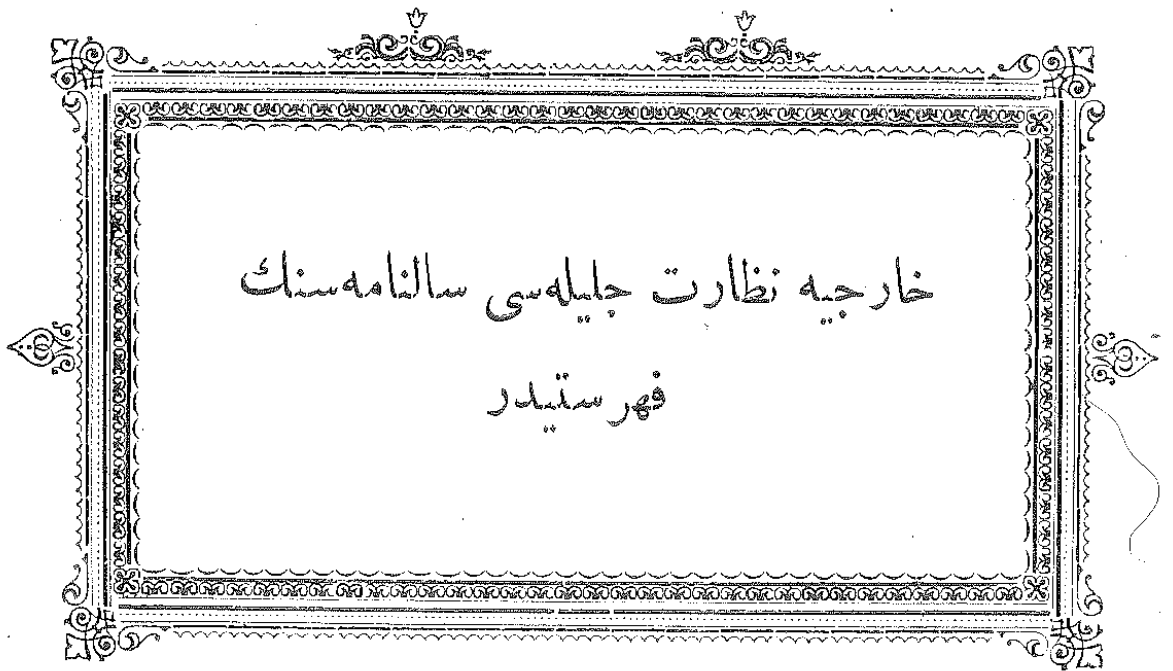 خارجیه نظارت جلیله‌سی سالنامه‌سنك
فهرستیدر